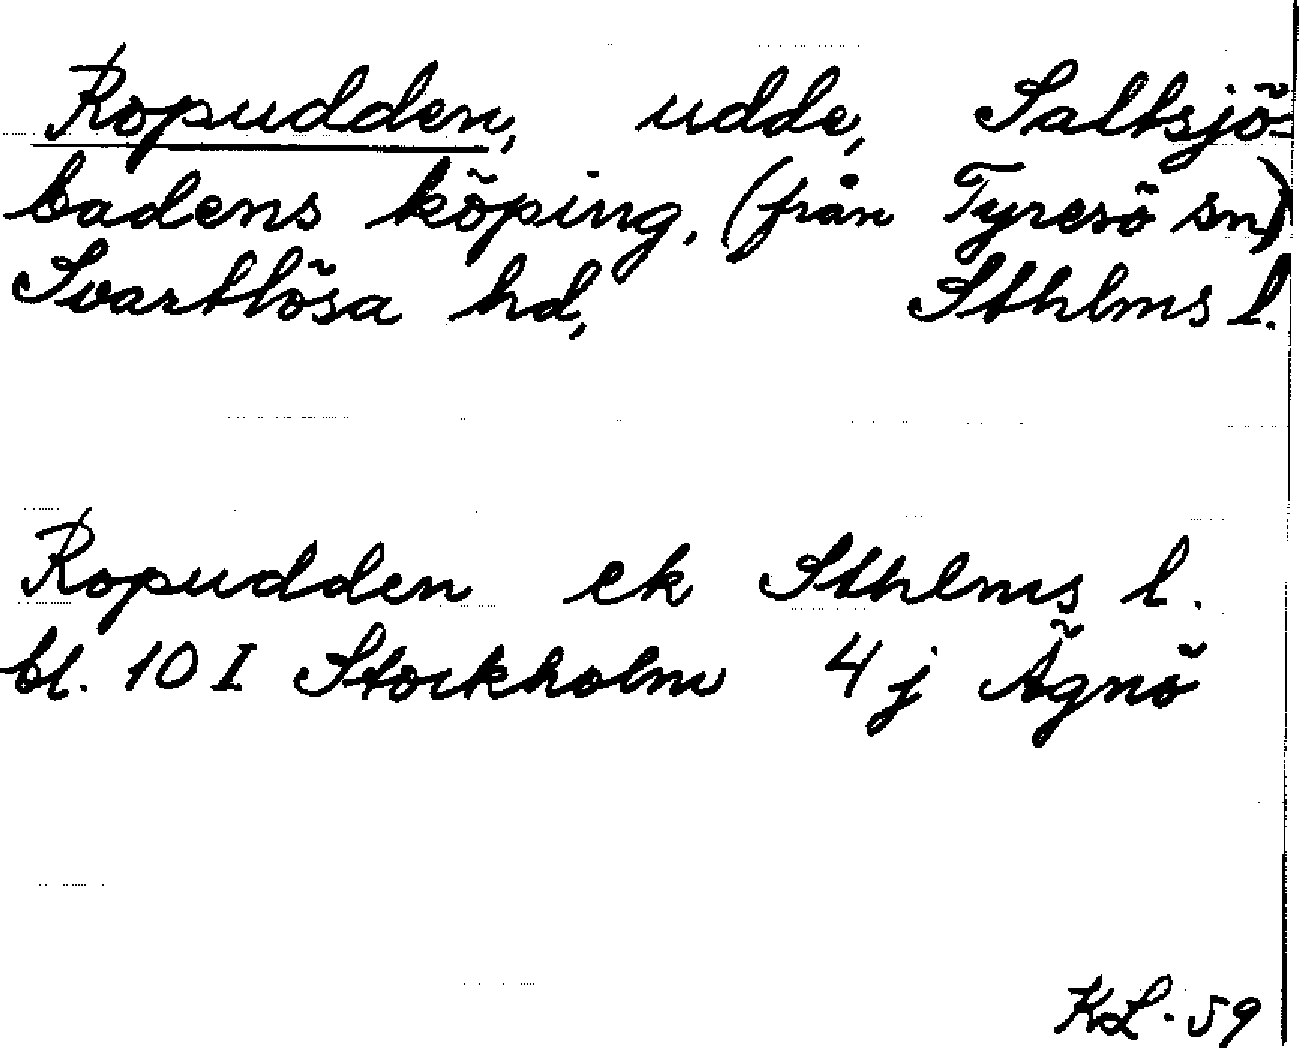 Ropudden, udde, Saltsjö-
badens köping, (från Tyresö sn)
Svartlösa hd, Sthlms l.
Ropudden ek Sthlms l.
bl. 10 I Stockholm 4 j Ägnö
KL. 59